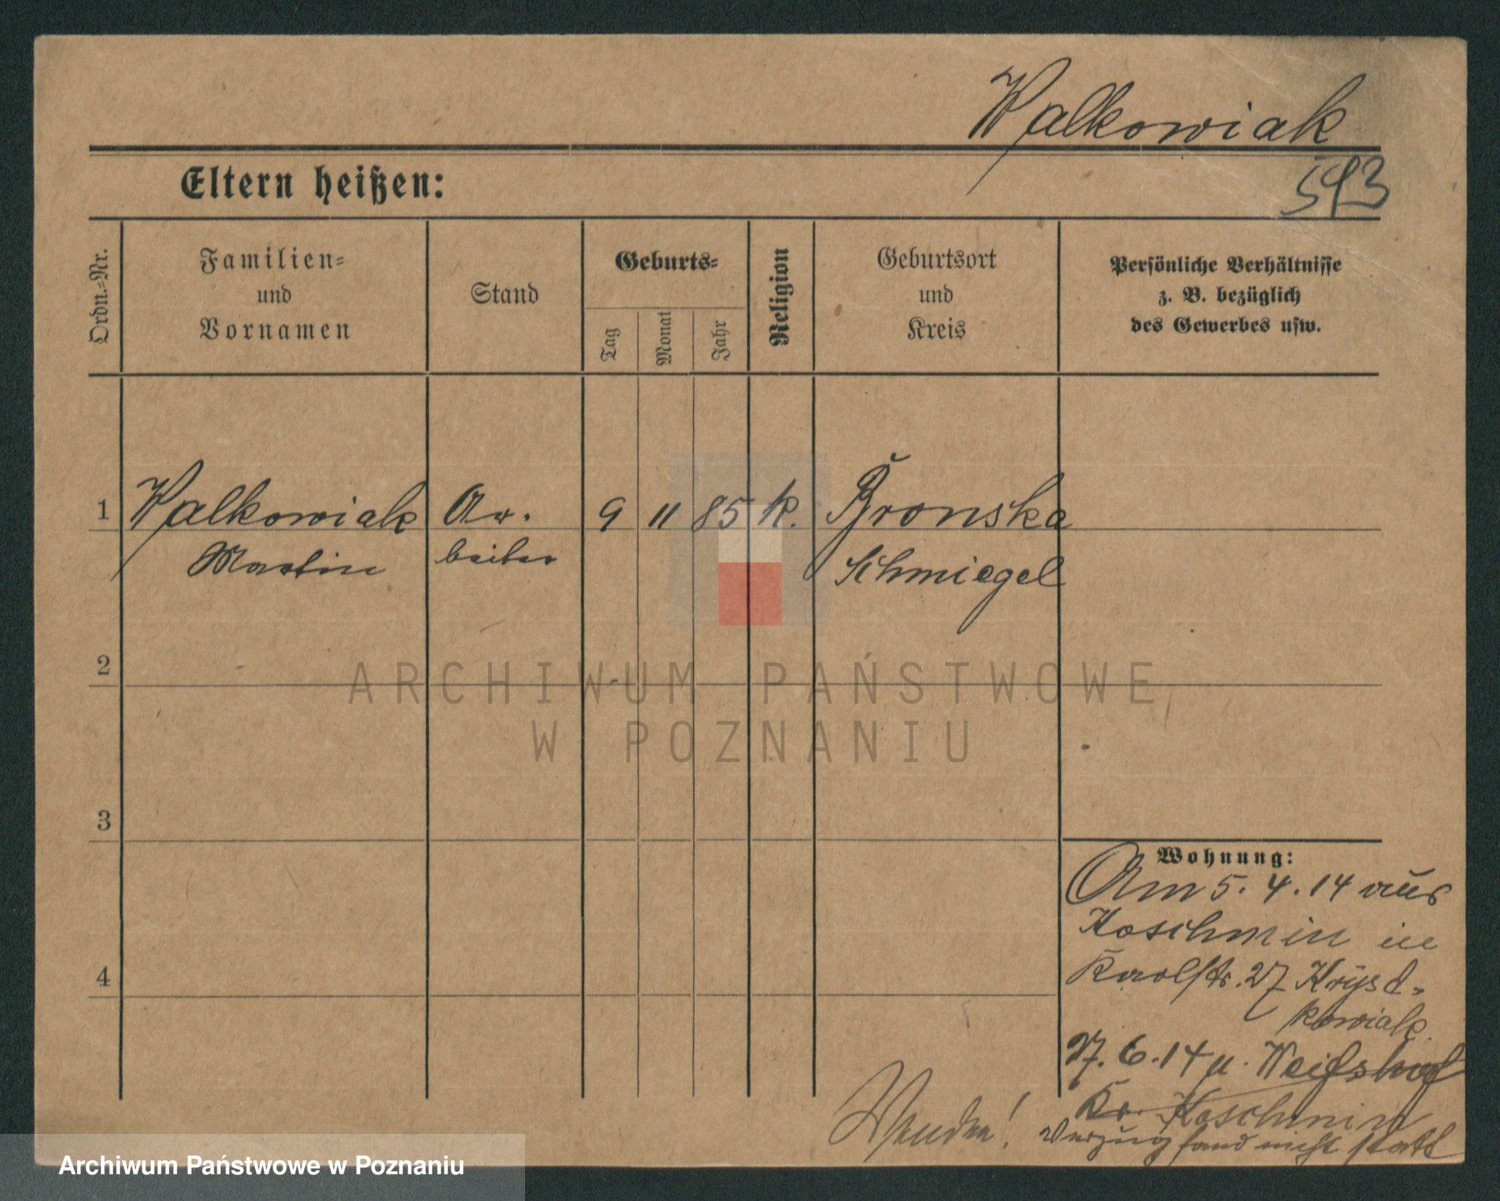 Walkowiak
593
Eltern heißen:
Ordn.-Nr.
Familien-
und
Vornamen
Stand
Geburts-
Tag
Monat
Jahr
Religion
Geburtsort
und
Kreis
Persönliche Verhältnisse
z. B. bezüglich
des Gewerbes usw.
1 Walkowiak Ar- 9 11 85 k. Bronsko
Martin beiter Schmiegel
2
3
4
Wohnung:
Am 5.4.14 aus
Koschmin in
Karlstr. 27
kowiak
27.6.14 n. Weißhof
Kr. Koschmin
Verzug fand nicht statt
Wenden!
ARCHIWUM PAŃSTWOWE
W POZNANIU
Archiwum Państwowe w Poznaniu